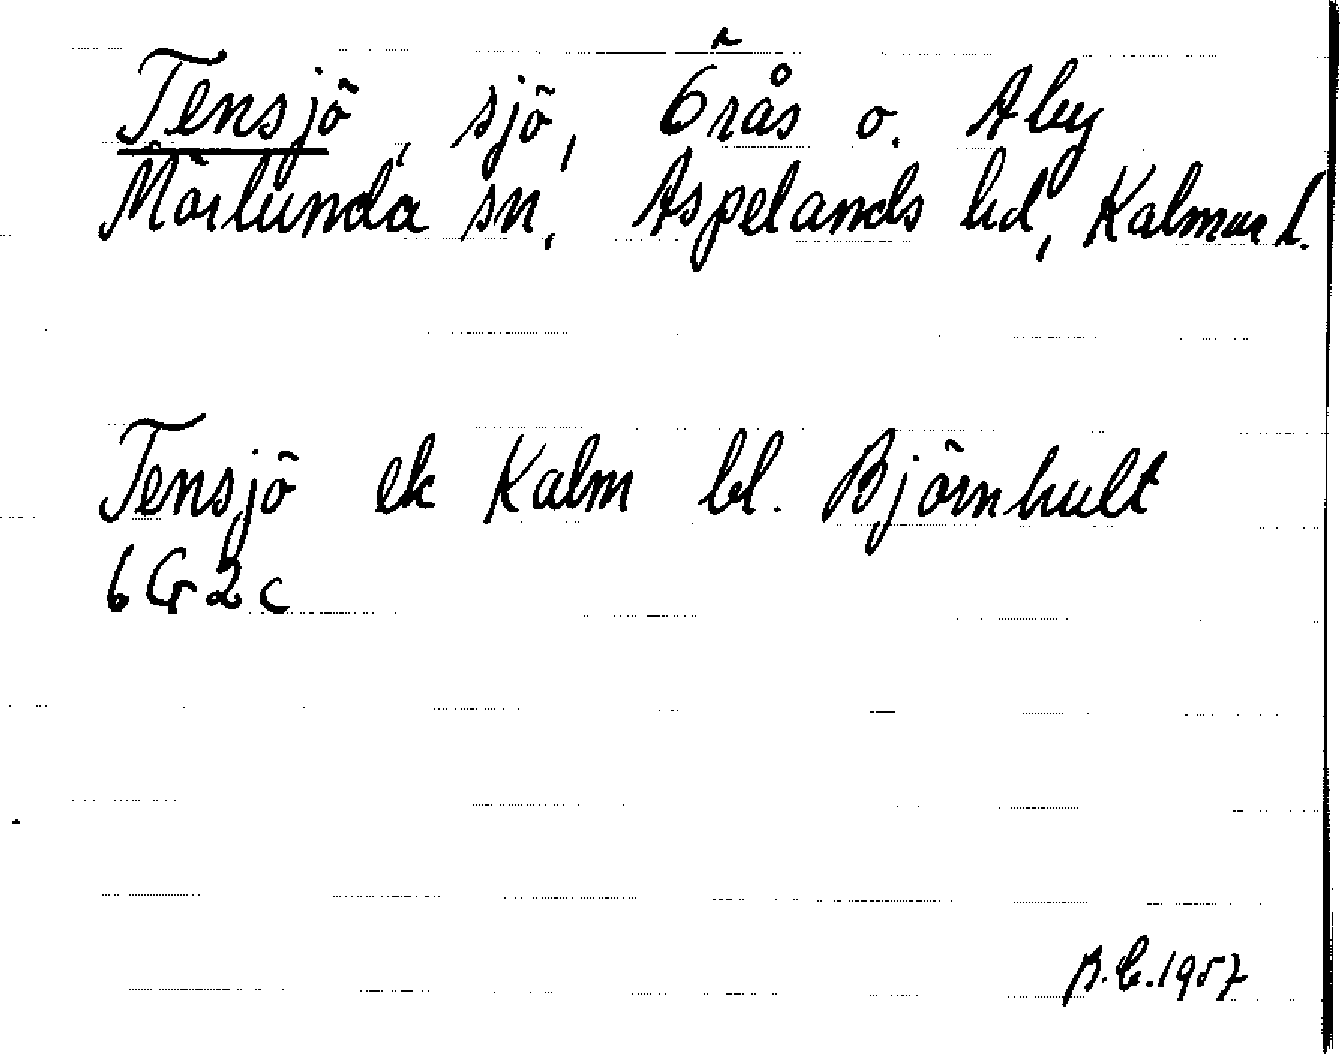 Tensjö, sjö, Örås o. Aby
Mörlunda sn. Aspelands hd, Kalmar l.
Tensjö ek Kalm bl. Björnhult
6 G 2 c
B.E.1957